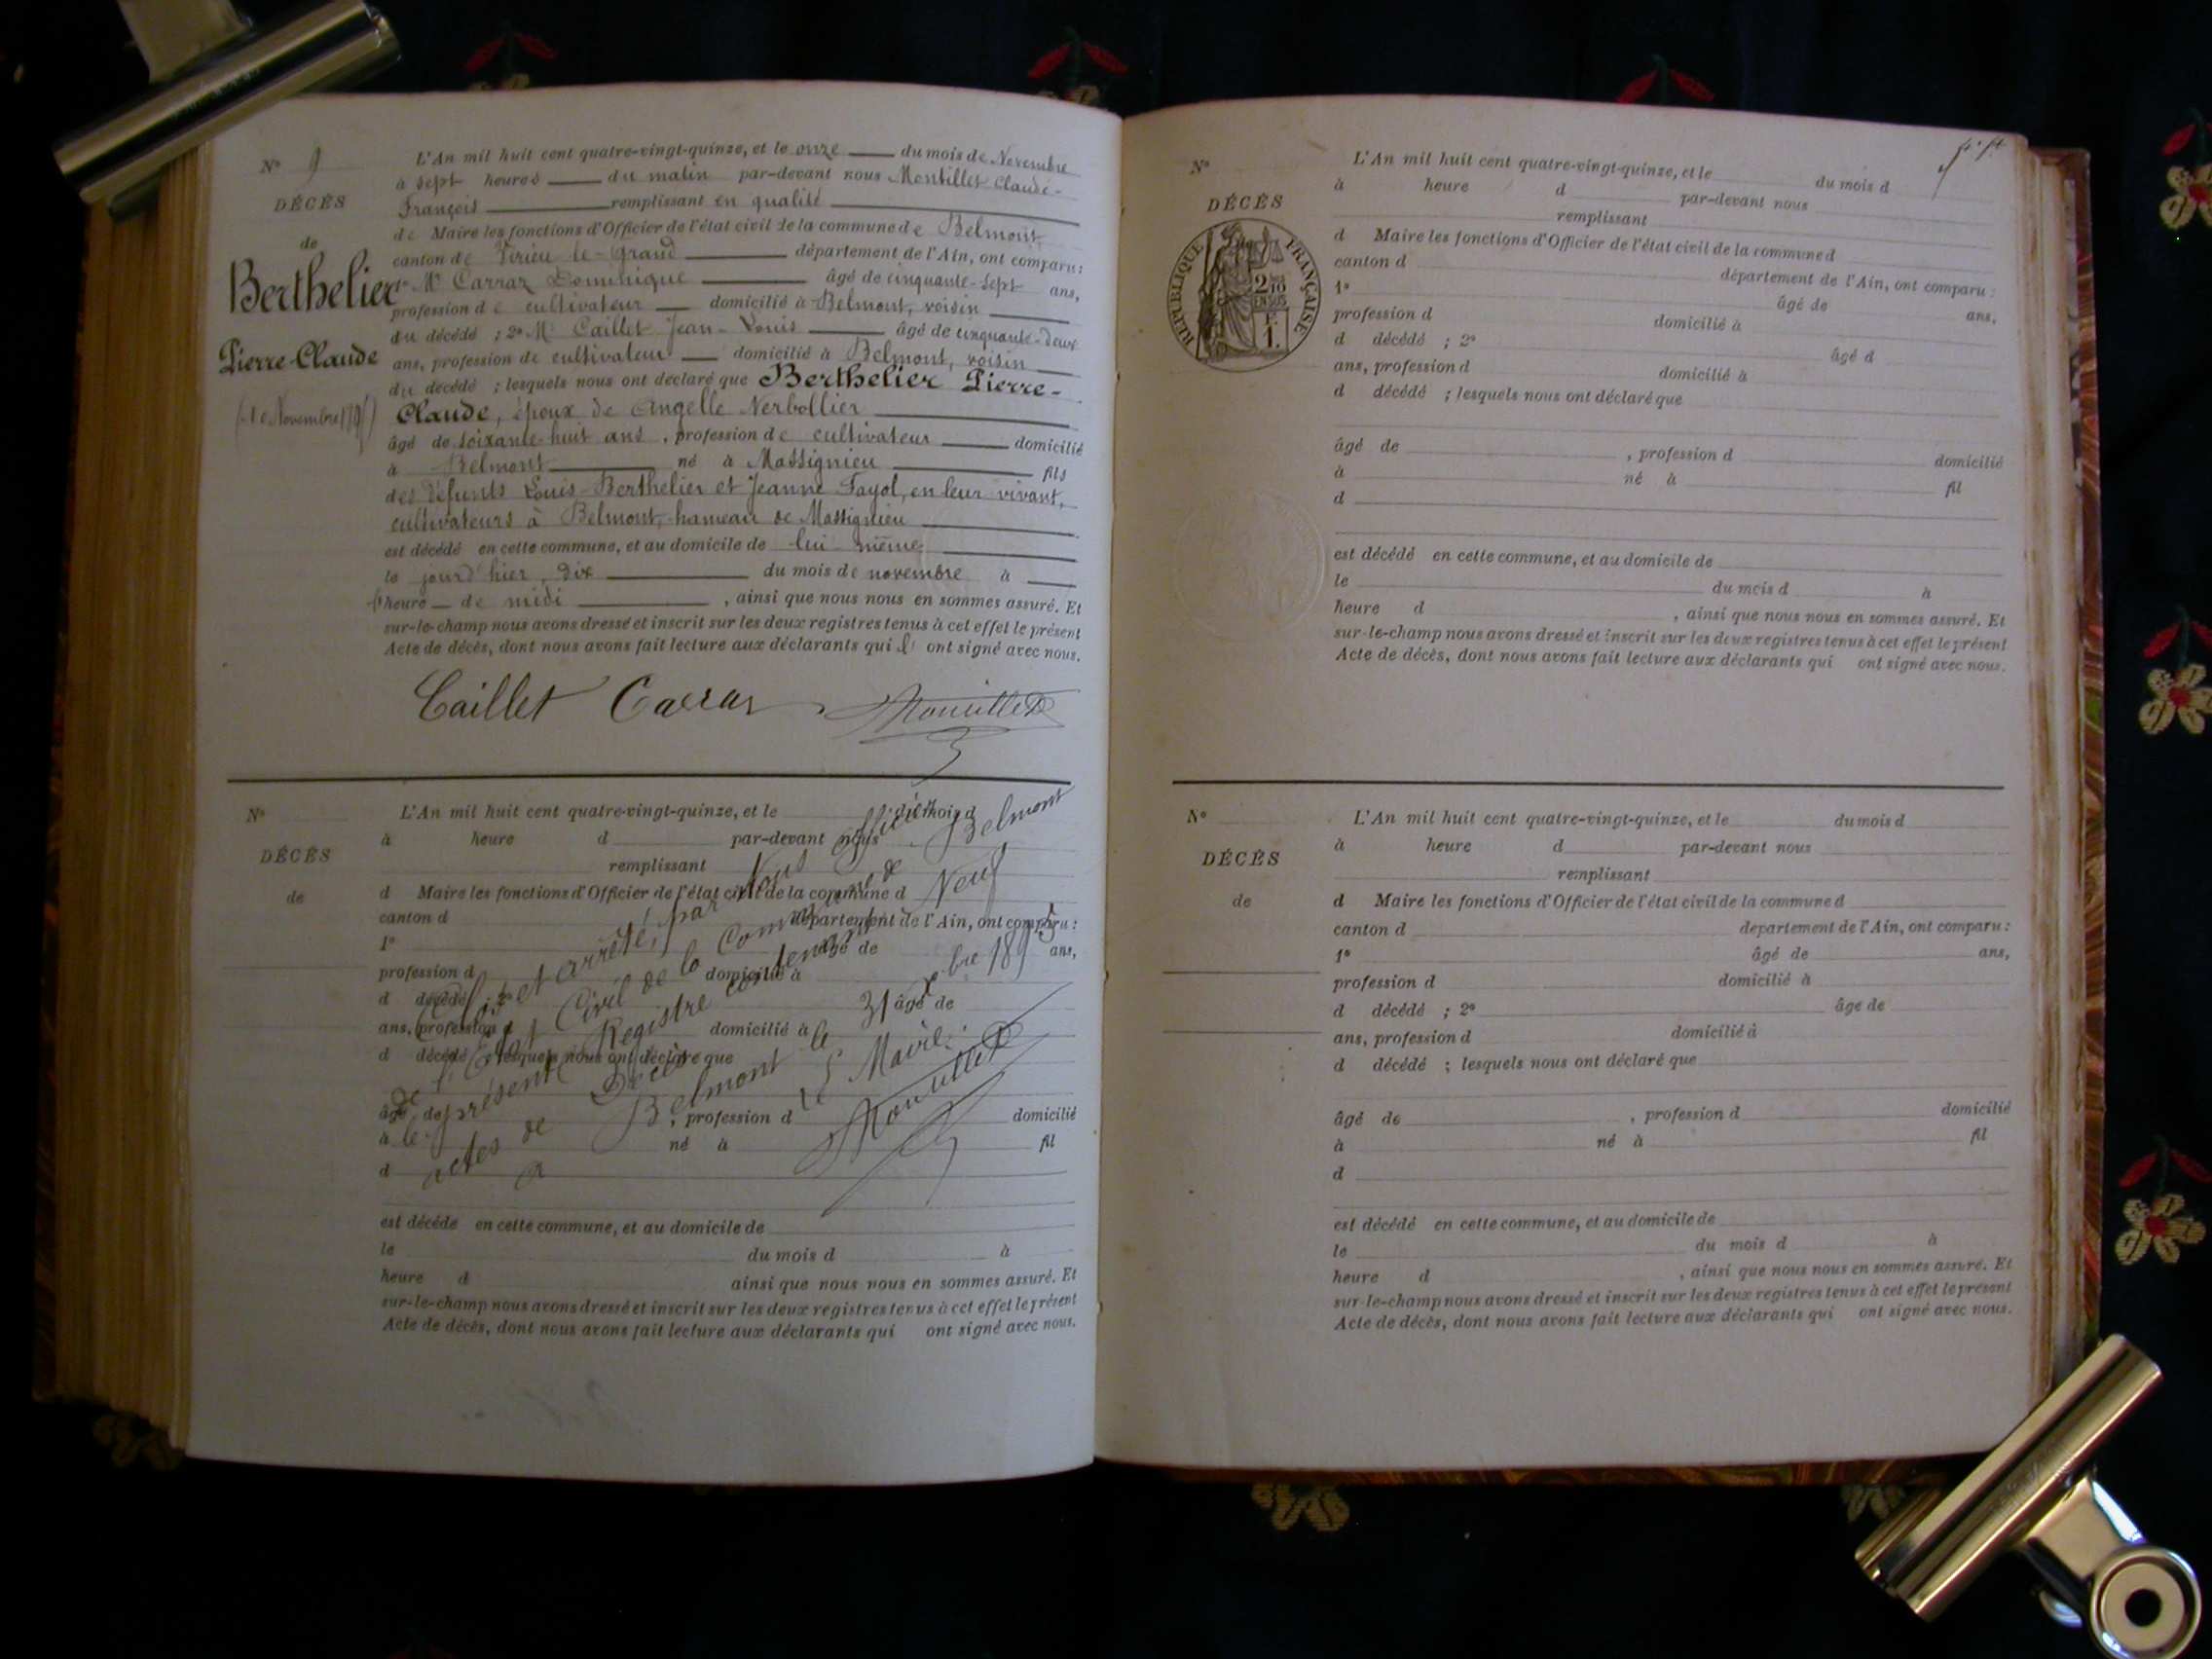 N° 9
DÉCÈS
de
Berthelier
Pierre-Claude
L'An mil huit cent quatre-vingt-quinze, et le onze du mois de Novembre
à sept heures du matin par-devant nous Montillet Claude-
François remplissant en qualité
de Maire les fonctions d'Officier de l'état civil de la commune de Belmont,
canton de Virieu-le-Grand département de l'Ain, ont comparu:
1° Mr Carraz Dominique âgé de cinquante-sept ans,
profession de cultivateur domicilié à Belmont, voisin
du décédé ; 2° Mr Caillet Jean-Louis âgé de cinquante-deux
ans, profession de cultivateur domicilié à Belmont, voisin
du décédé ; lesquels nous ont déclaré que Berthelier Pierre-
Claude, époux de Angelle Nerbollier
âgé de soixante-huit ans, profession de cultivateur domicilié
à Belmont né à Massignieu fils
des défunts Louis Berthelier et Jeanne Fayol, en leur vivant,
cultivateurs à Belmont, hameau de Massignieu
est décédé en cette commune, et au domicile de lui-même
le jourd'hier, dix du mois de novembre à
heure de midi, ainsi que nous nous en sommes assuré. Et
sur-le-champ nous avons dressé et inscrit sur les deux registres tenus à cet effet le présent
Acte de décès, dont nous avons fait lecture aux déclarants qui ont signé avec nous.
Caillet Carraz Montillet
N°
DÉCÈS
de
L'An mil huit cent quatre-vingt-quinze, et le du mois d
à heure d par-devant nous
remplissant
d Maire les fonctions d'Officier de l'état civil de la commune d
canton d département de l'Ain, ont comparu :
1° âgé de ans,
profession d domicilié à
d décédé ; 2° âgé de
ans, profession d domicilié à
d décédé ; lesquels nous ont déclaré que
âgé de , profession d domicilié
à né à fil
d
est décédé en cette commune, et au domicile de
le du mois d à
heure d ainsi que nous nous en sommes assuré. Et
sur-le-champ nous avons dressé et inscrit sur les deux registres tenus à cet effet le présent
Acte de décès, dont nous avons fait lecture aux déclarants qui ont signé avec nous.
et arrêté, par Nous Officier
de l'Etat Civil de la Commune de Belmont
le présent Registre contenant Neuf
actes de Décès
à Belmont le 31 Xbre 1895
Le Maire
Montillet
N°
DÉCÈS
RÉPUBLIQUE FRANÇAISE
L'An mil huit cent quatre-vingt-quinze, et le du mois d
à heure d par-devant nous
remplissant
d Maire les fonctions d'Officier de l'état civil de la commune d
canton d département de l'Ain, ont comparu :
1° âgé de ans,
profession d domicilié à
d décédé ; 2° âgé d
ans, profession d domicilié à
d décédé ; lesquels nous ont déclaré que
âgé de , profession d domicilié
à né à fil
d
est décédé en cette commune, et au domicile de
le du mois d à
heure d , ainsi que nous nous en sommes assuré. Et
sur-le-champ nous avons dressé et inscrit sur les deux registres tenus à cet effet le présent
Acte de décès, dont nous avons fait lecture aux déclarants qui ont signé avec nous.
N°
DÉCÈS
de
L'An mil huit cent quatre-vingt-quinze, et le du mois d
à heure d par-devant nous
remplissant
d Maire les fonctions d'Officier de l'état civil de la commune d
canton d département de l'Ain, ont comparu :
1° âgé de ans,
profession d domicilié à
d décédé ; 2° âge de
ans, profession d domicilié à
d décédé ; lesquels nous ont déclaré que
âgé de , profession d domicilié
à né à fil
d
est décédé en cette commune, et au domicile de
le du mois d à
heure d , ainsi que nous nous en sommes assuré. Et
sur-le-champ nous avons dressé et inscrit sur les deux registres tenus à cet effet le présent
Acte de décès, dont nous avons fait lecture aux déclarants qui ont signé avec nous.